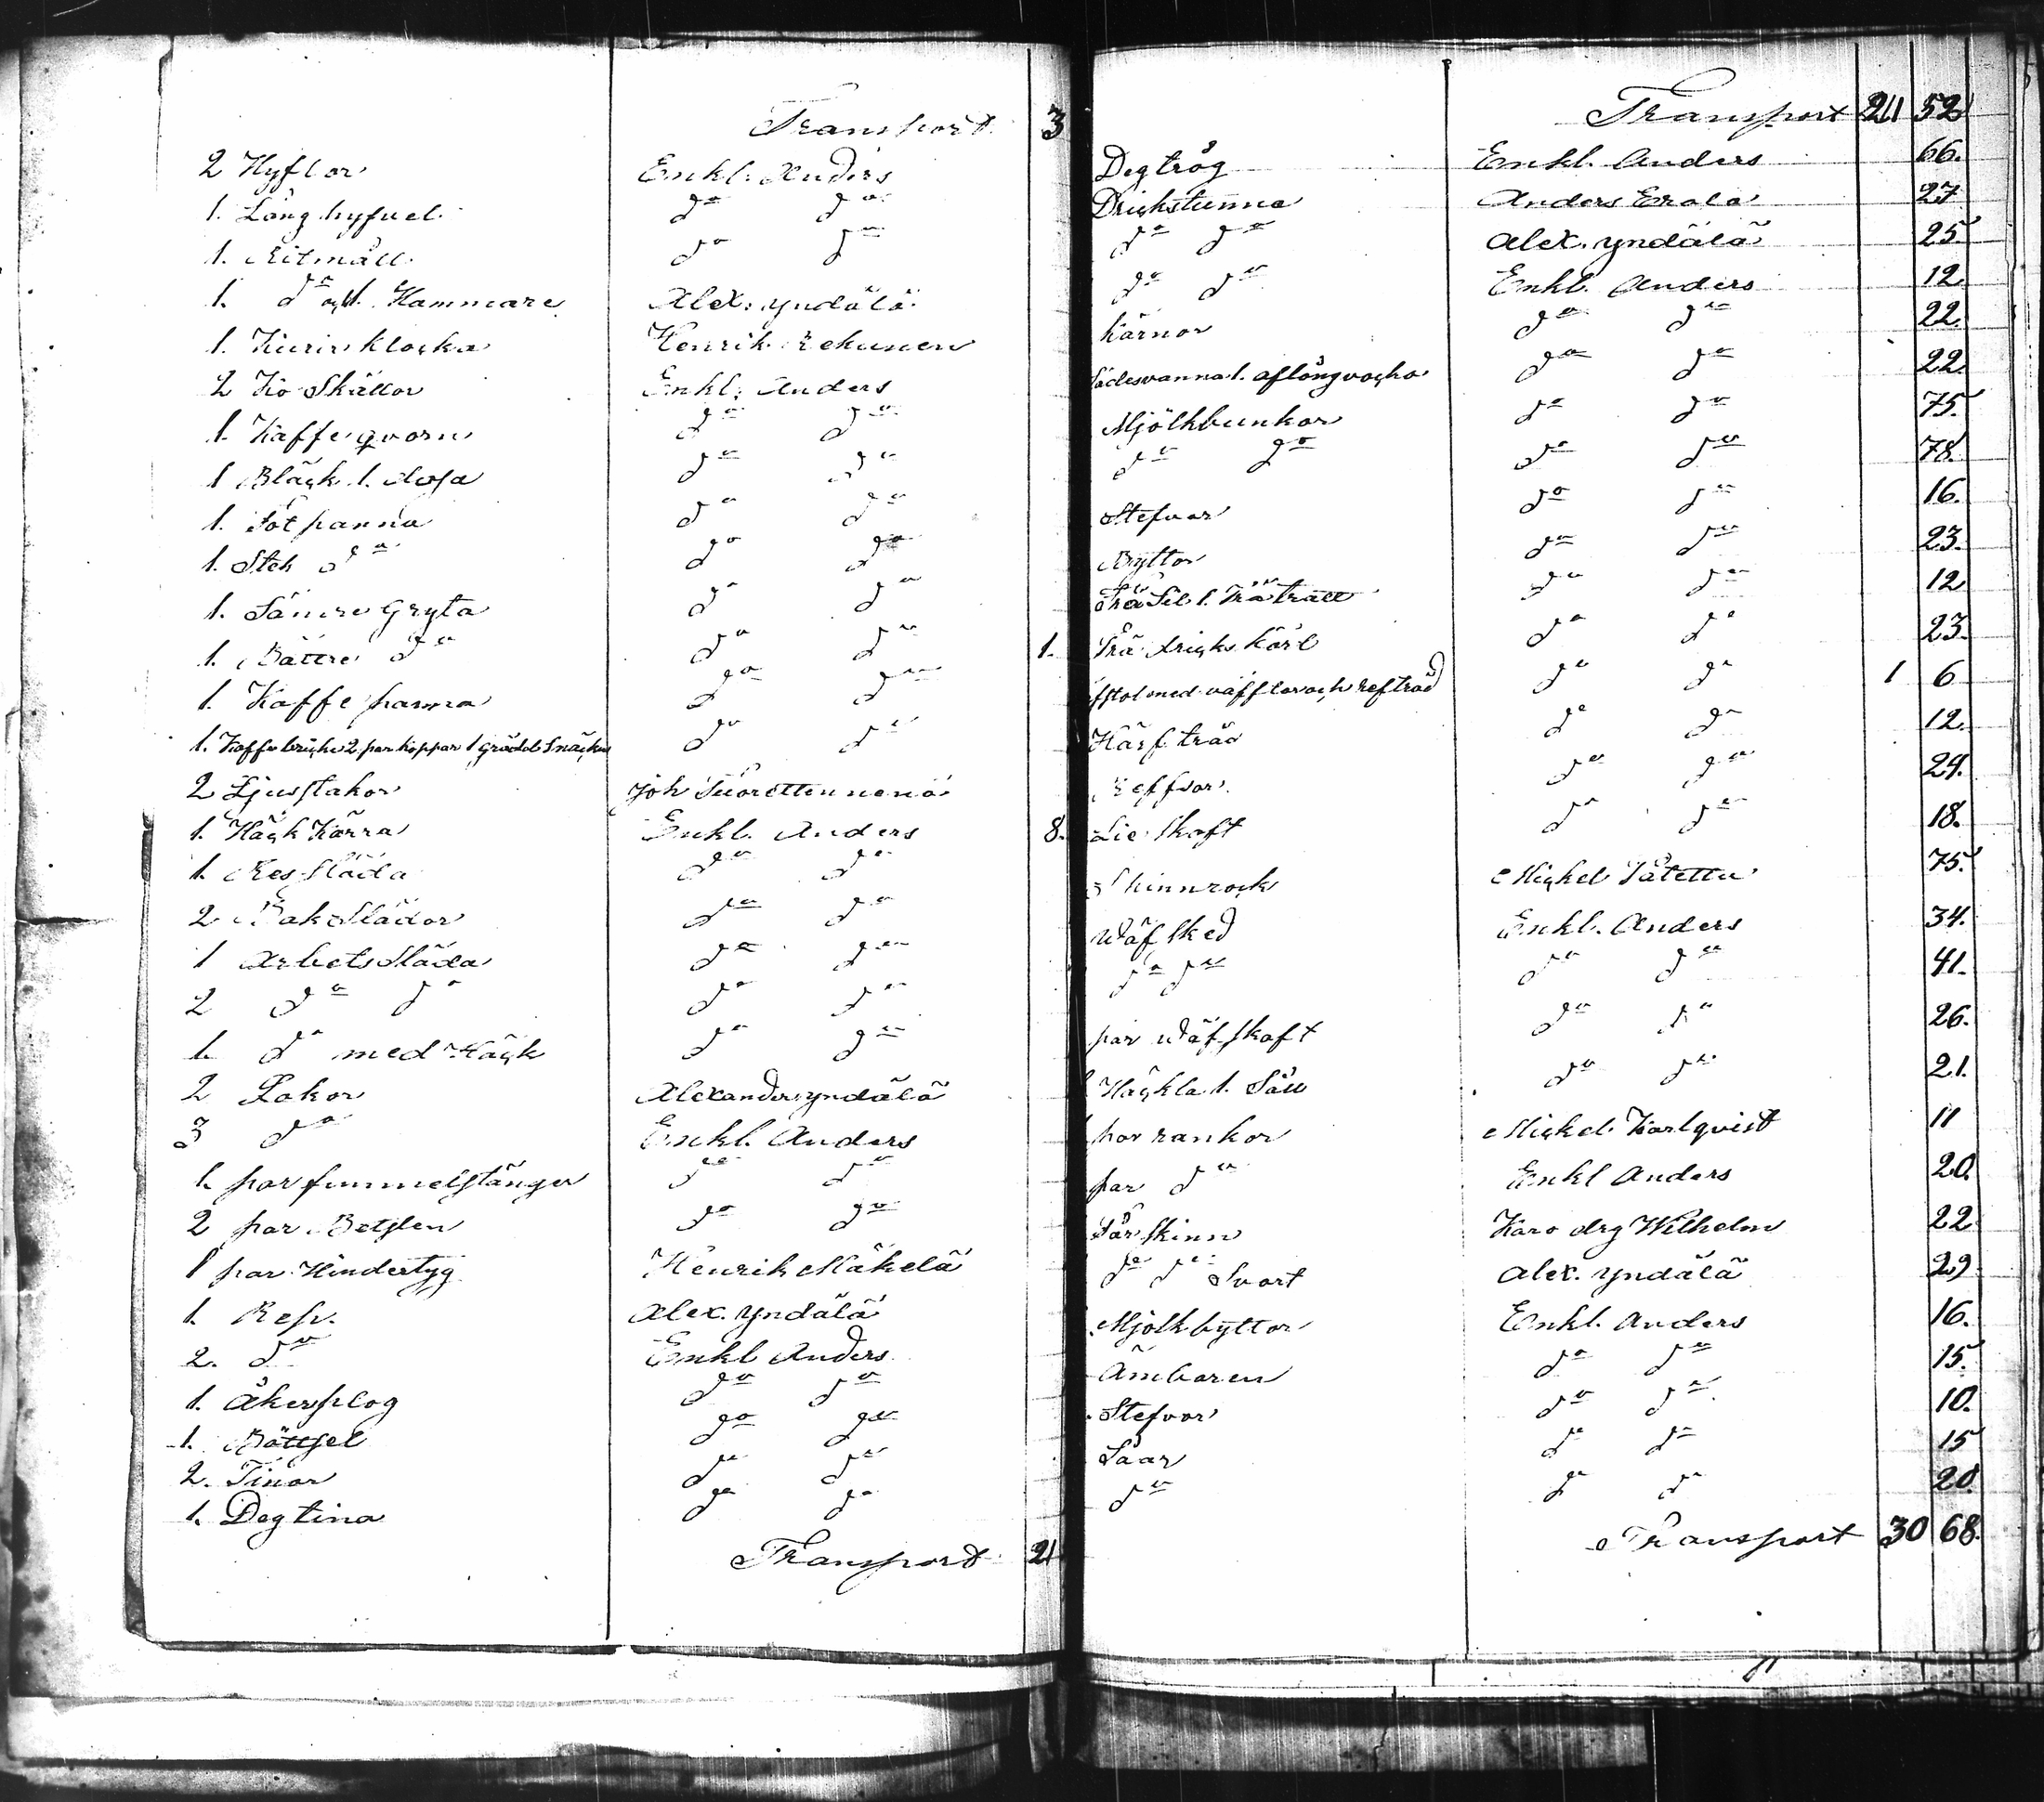 Transport 3
2 Hyflor Enkl. Anders
1. Lång hyfvel do do
1. Ritmått do do
1. do och 1. Hammare Alex. Yndälä
1. klocka Henrik Rekunen
2 Ko Skällor Enkl. Anders
1. Kaffe qvarn do do
1 Bläck 1. dosa do do
1. Fot panna do do
1. Stek do do do
1. Sämre Gryta do do
1. Bättre do do do
1. Kaffe panna do do
1. Kaffe bricke 2 par koppar 1 grädd Snäcka do do
2 Ljusstakar Joh
1. Häck Kärra Enkl. Anders
1. Res Släda do do
2 Bak Slädor do do
1 Arbets Släda do do
2 do do do do
1. do med Häck do do
2 Lokor Alexander Yndälä
3 do Enkl. Anders
1. par fimmelstänger do do
2 par Betslen do do
1 par Hindertyg Henrik Mäkelä
1. Rep. Alex. Yndälä
2. do Enkl Anders
1. Åkerplog do do
1. do do
2. Tinor do do
1. Degtina do do
Transport 21
Transport 21 52
Degtråg Enkl. Anders 66.
Drickstunna Anders Erola 27
do do Alex. Yndälä 25
do do Enkl. Anders 12
kärnor do do 22.
Sädesvanna 1. aflång vacka do do 22
Mjölkbunkor do do 75.
do do do do 78.
Stefvor do do 16.
Byttor do do 23.
Trä Sil 1. Trä tratt do do 12
1. Trä dricks kärl do do 23.
med och reftråd do do 1 6
Härfträd do do 12.
Reffsor do do 24.
8. Lie Skaft do do 18.
Spinnrock Mickel 75
Wäf Sked Enkl. Anders 34.
do do do do 41.
par Wäf skaft do do 26.
Häckla 1. Såll do do 21.
par rankor Mickel Karlqvist 11
par do Enkl Anders 20.
Får Skinn Karo drg Wilhelm 22
do do Svart Alex. Yndälä 29
Mjölkbyttor Enkl. Anders 16.
Ämbaren do do 15.
Stefvor do do 10.
Såar do do 15
do do do 20.
Transport 30 68.